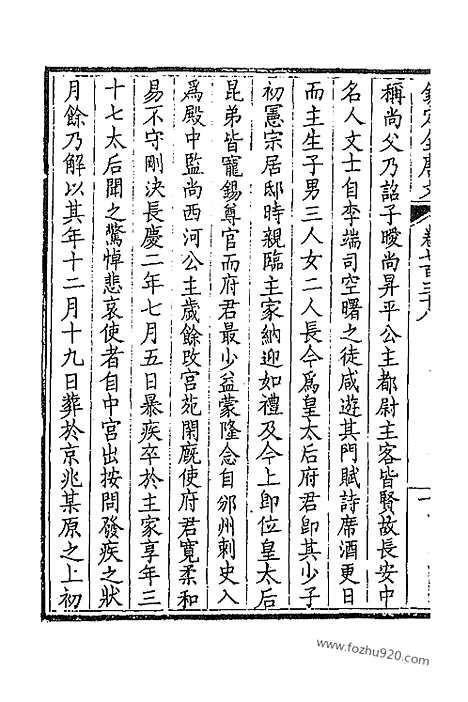 稱尚父乃詔子曖尚昇平公主都尉主客皆賢故長安中
名人文士自李端司空曙之徒咸遊其門賦詩席酒更日
而主生子男三人女二人長今爲皇太后府君卽其少子
初憲宗居邸時親臨主家納迎如禮及今上卽位皇太后
昆弟皆寵錫尊官而府君最少益蒙隆念自邠州刺史入
爲殿中監尚西河公主歲餘改宫苑閑廐使府君寛柔和
易不守剛決長慶二年七月五日暴疾卒於主家享年三
十七太后聞之驚悼悲哀使者自中宫出按問發疾之狀
月餘乃解以其年十二月十九日葬於京兆某原之上初
www.fozhu920.com